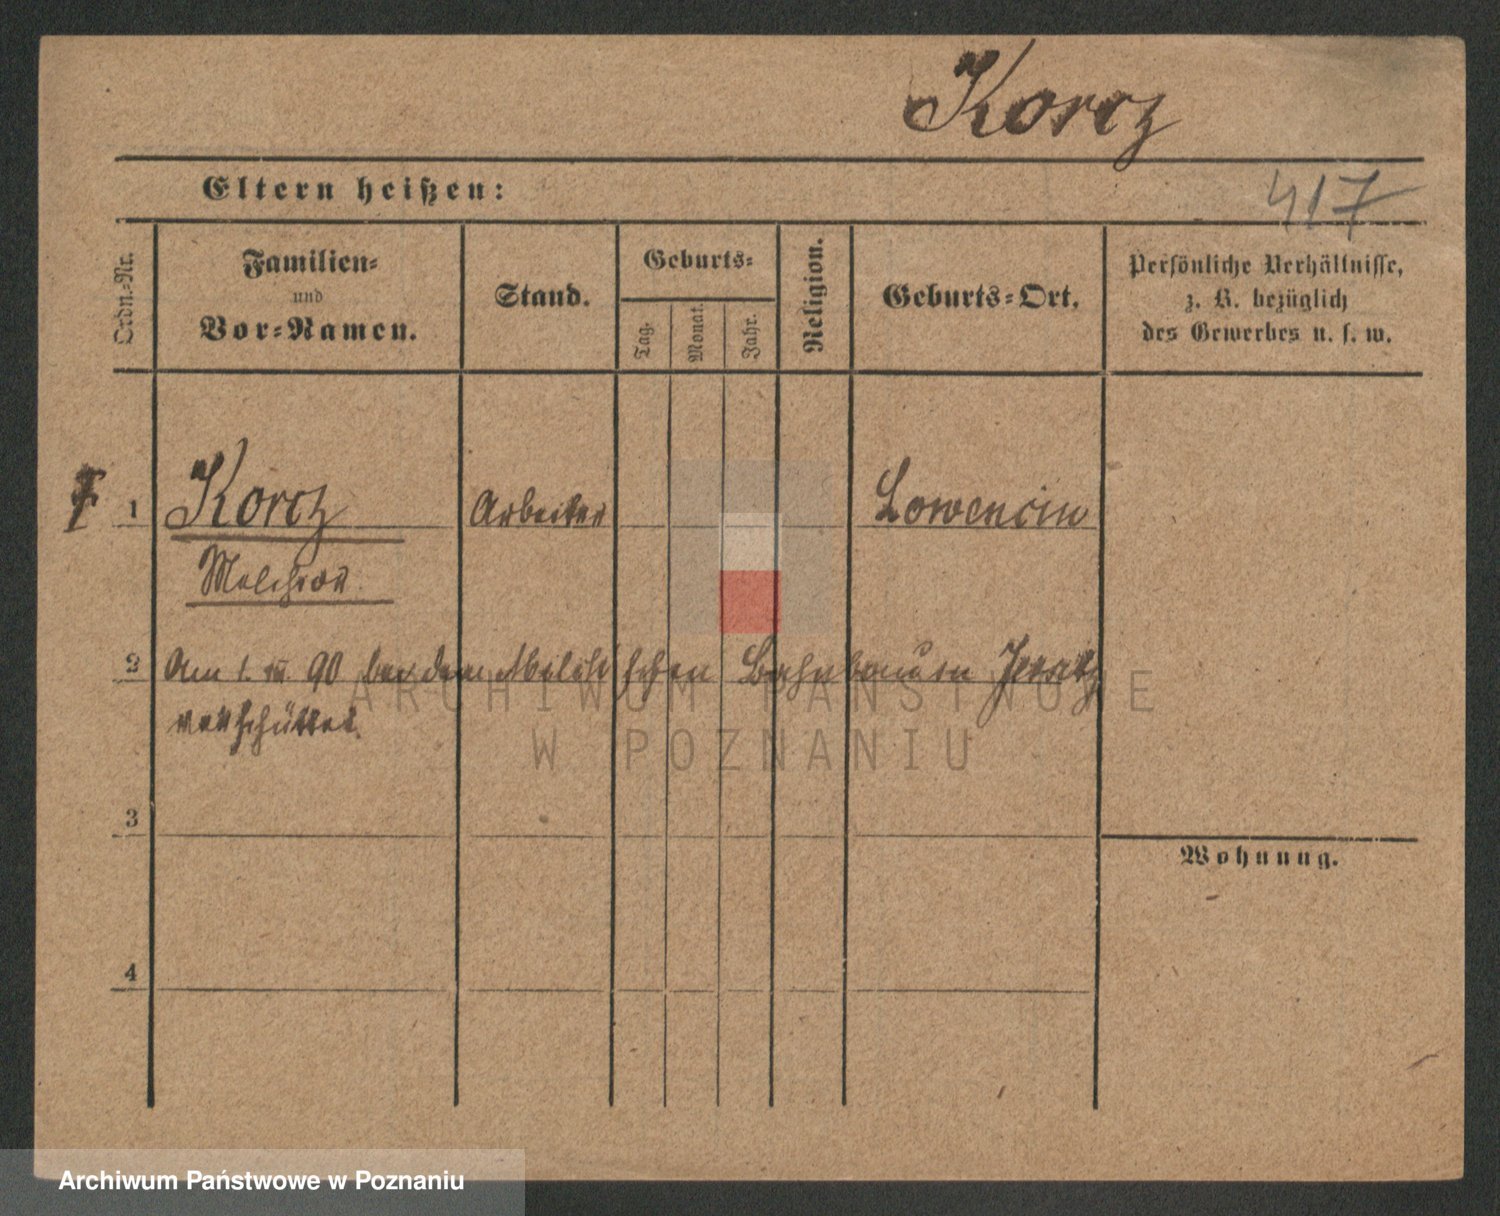 Korcz
Eltern heißen:
417
Ordn.-Nr.
Familien-
und
Vor-Namen.
Stand.
Geburts-
Tag.
Monat.
Jahr.
Religion.
Geburts-Ort.
Persönliche Verhältnisse,
z. B. bezüglich
des Gewerbes u. s. w.
1 Korcz Arbeiter Lowencin
Melchior
2 Am 1. 90 bei dem schen Bahnbau in Jersitz
verschüttet.
3
Wohnung.
4
ARCHIWUM PAŃSTWOWE
W POZNANIU
Archiwum Państwowe w Poznaniu